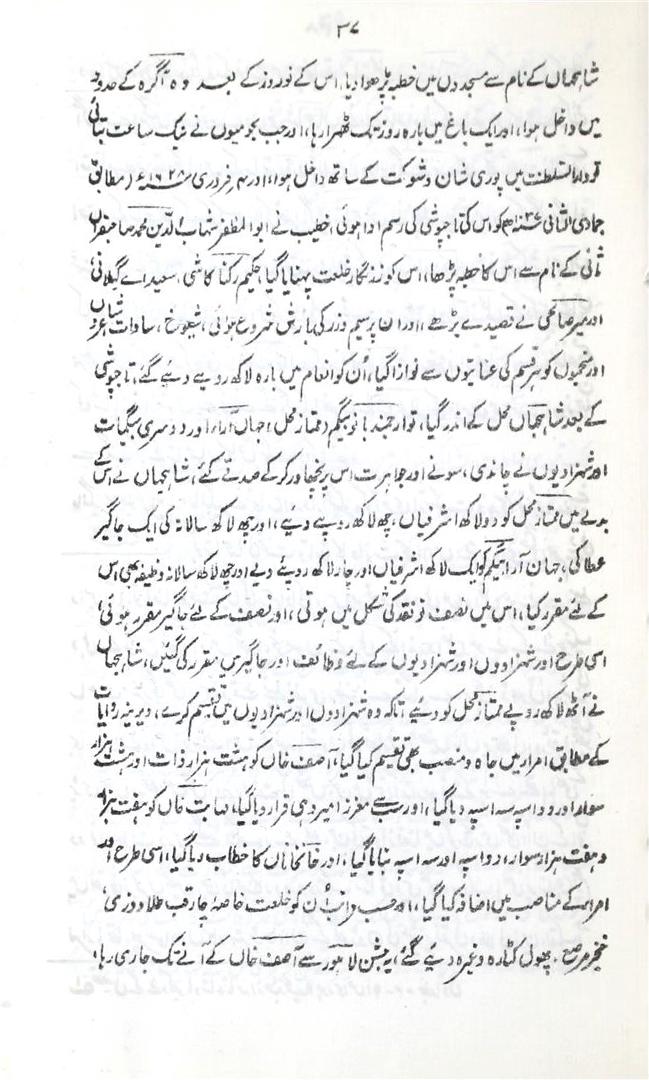 ۳۷
شاہجہاں کے نام سے مسجدوں میں خطبہ پڑھوا دیا، اس کے نو روز کے بعد وہ آگرہ کے حدود
میں داخل ہوا، اور ایک باغ میں بارہ روز تک ٹھہرا رہا، اور جب نجومیوں نے نیک ساعت بتائی
تو دارالسلطنت میں پوری شان و شوکت کے ساتھ داخل ہوا، اور ۴ر فروری ۱۶۲۸ء مطابق
جمادی الثانی ۱۰۳۷ھ کو اس کی تاجپوشی کی رسم ادا ہوئی، خطیب نے ابوالمظفر شہاب الدین محمد صاحبقران
ثانی کے نام سے اس کا خطبہ پڑھا، اس کو زرنگار خلعت پہنایا گیا، حکیم رکنا کاشی، سعیدائے گیلانی
اور میر صالحی نے قصیدے پڑھے، اور ان پر سیم و زر کی بارش شروع ہوئی، شیوخ، سادات، شاعروں
اور منجموں کو ہر قسم کی عنایتوں سے نوازا گیا، اُن کو انعام میں بارہ لاکھ روپے دیئے گئے، تاجپوشی
کے بعد شاہجہاں محل کے اندر گیا، تو ارجمند بانو بیگم (ممتاز محل) جہاں آراء اور دوسری بیگمات
اور شہزادیوں نے چاندی، سونے اور جواہرت اس پر نچھاور کر کے صدقے کئے، شاہجہاں نے اس کے
بدلے میں ممتاز محل کو دو لاکھ اشرفیاں، چھ لاکھ روپے دیئے، اور چھ لاکھ سالانہ کی ایک جاگیر
عطا کی، جہان آرا بیگم کو ایک لاکھ اشرفیاں اور چار لاکھ روپئے دیے اور چھ لاکھ سالانہ وظیفہ بھی اس
کے لئے مقرر کیا، اس میں نصف تو نقد کی شکل میں ہوتی، اور نصف کے لئے جاگیر مقرر ہوئی،
اسی طرح اور شہزادوں اور شہزادیوں کے لئے وظائف اور جاگیریں مقرر کی گئیں، شاہجہاں
نے آٹھ لاکھ روپے ممتاز محل کو دئیے تاکہ وہ شہزادوں اور شہزادیوں میں تقسیم کرے، دیرینہ روایات
کے مطابق امراء میں جاہ و منصب بھی تقسیم کیا گیا، آصف خاں کو ہشت ہزار ذات اور ہشت ہزار
سوار اور دو اسپہ سہ اسپہ دیا گیا، اور سب سے معزز امیر وہی قرار دیا گیا، مہابت خاں کو ہفت ہزار
و ہفت ہزار سوار، دو اسپہ اور سہ اسپہ بنایا گیا، اور خانخاناں کا خطاب دیا گیا، اسی طرح اور
امراء کے مناصب میں اضافہ کیا گیا، اور حسب مراتب اُن کو خلعت خاصہ چارقب طلا دوزی،
خنجر مرصع، پھول کٹارہ وغیرہ دیئے گئے، یہ جشن لاہور سے آصف خاں کے آنے تک جاری رہا،